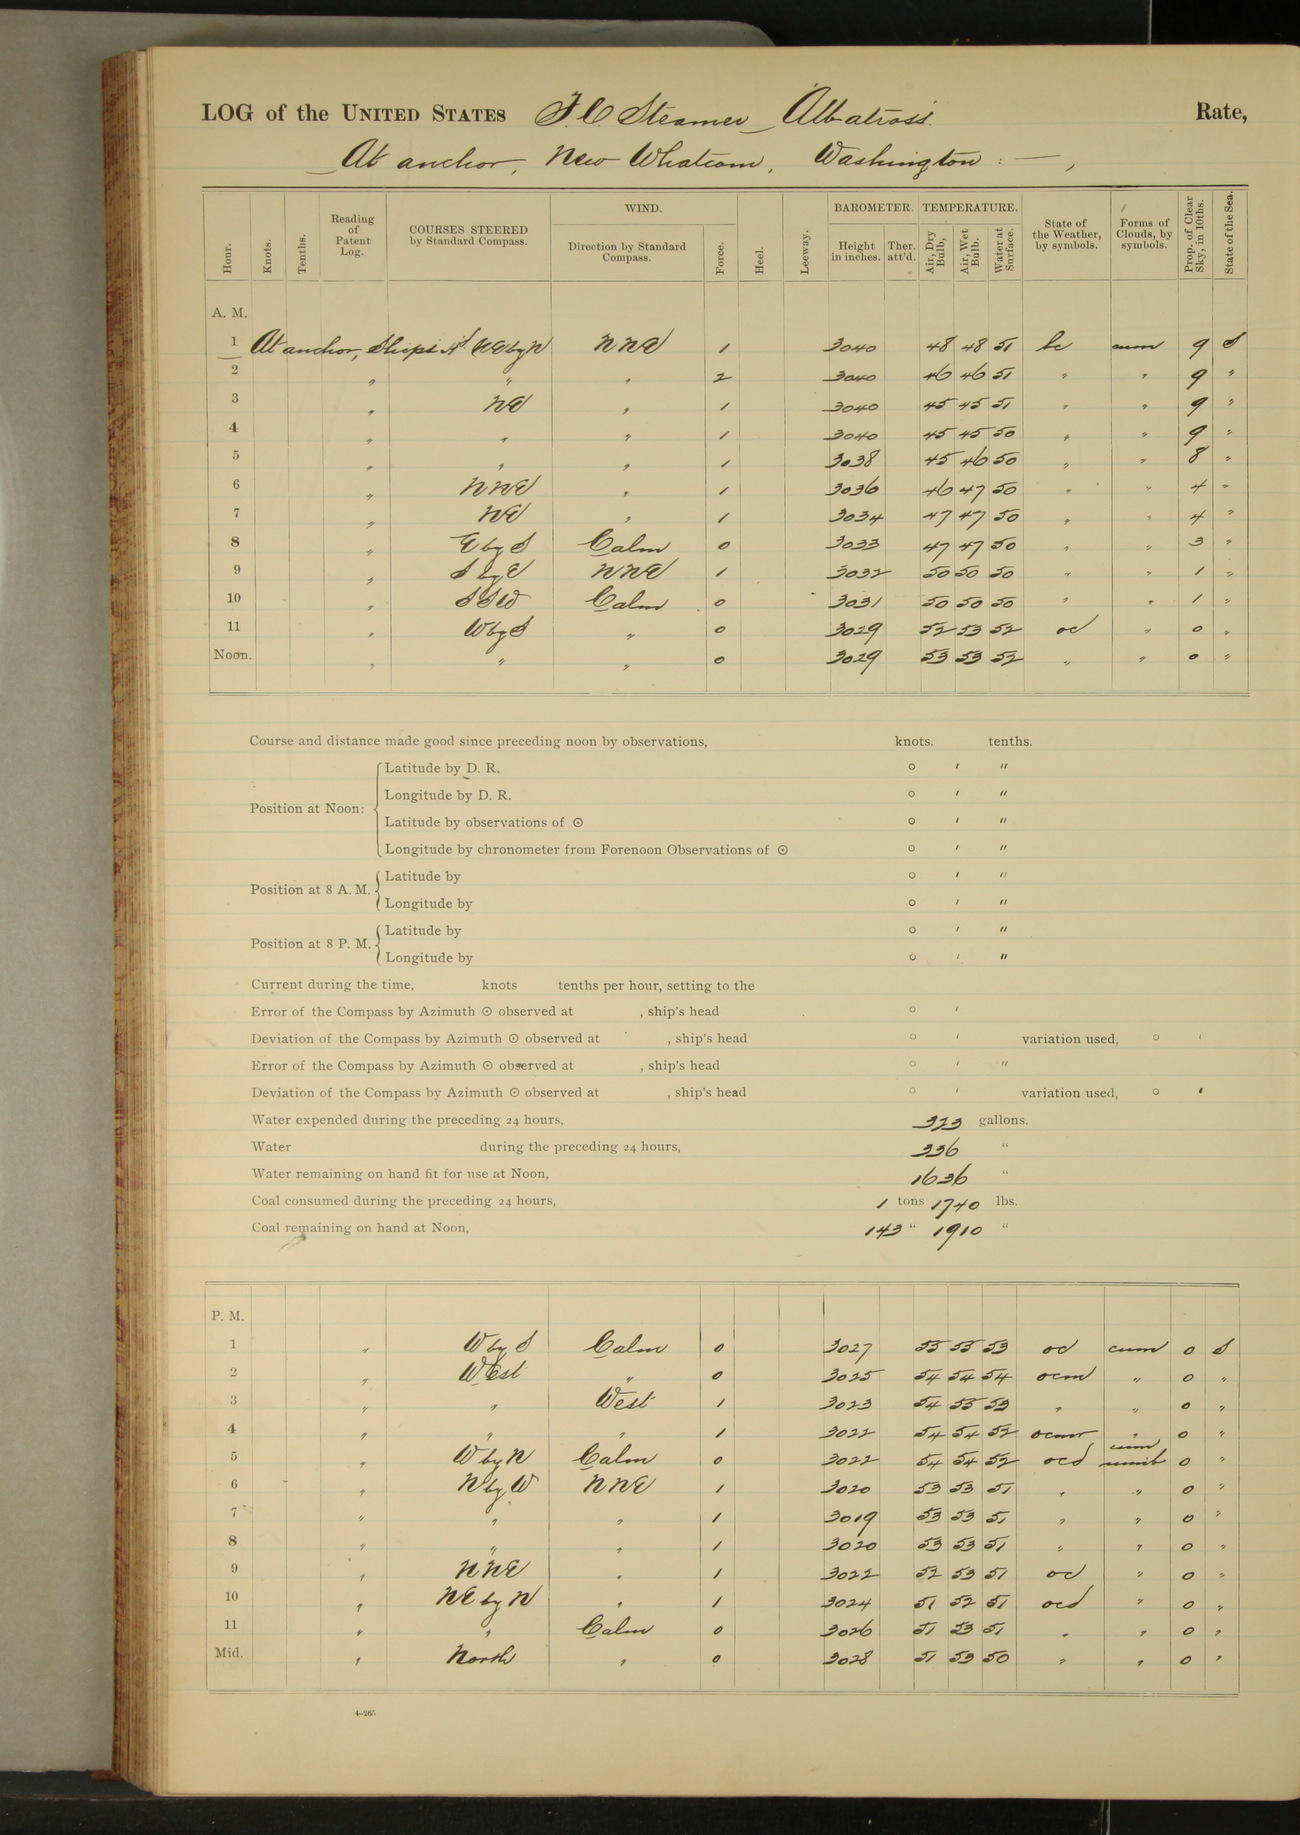 LOG of the UNITED STATES F. C. Steamer Albatross. Rate,
At anchor, New Whatcom, Washington : — ,
Hour. Knots. Tenths. Reading of Patent Log. COURSES STEERED by Standard Compass. WIND. Direction by Standard Compass. Force. Heel. Leeway. BAROMETER. Height in inches. Ther. att'd. TEMPERATURE. Air, Dry Bulb, Air, Wet Bulb. Water at Surface. State of the Weather, by symbols. Forms of Clouds, by symbols. Prop. of Clear Sky, in 10ths. State of the Sea.
A. M.
1 At anchor, Ships Hd. NE by N NNE 1 3040 48 48 51 bc cum 9 S
2 " " " 2 3040 46 46 51 " " 9 "
3 " NE " 1 3040 45 45 51 " " 9 "
4 " " " 1 3040 45 45 50 " " 9 "
5 " " " 1 3038 45 46 50 " " 8 "
6 " NNE " 1 3036 46 47 50 " " 4 "
7 " NE " 1 3034 47 47 50 " " 4 "
8 " E by S Calm 0 3033 47 47 50 " " 3 "
9 " S by E NNE 1 3032 50 50 50 " " 1 "
10 " SSW Calm 0 3031 50 50 50 " " 1 "
11 " W by S " 0 3029 52 53 52 oc " 0 "
Noon. " " " 0 3029 53 53 52 " " 0 "
Course and distance made good since preceding noon by observations, knots. tenths.
Position at Noon:
Latitude by D. R. ° ′ ″
Longitude by D. R. ° ′ ″
Latitude by observations of ☉ ° ′ ″
Longitude by chronometer from Forenoon Observations of ☉ ° ′ ″
Position at 8 A. M.
Latitude by ° ′ ″
Longitude by ° ′ ″
Position at 8 P. M.
Latitude by ° ′ ″
Longitude by ° ′ ″
Current during the time, knots tenths per hour, setting to the
Error of the Compass by Azimuth ☉ observed at , ship's head ° ′
Deviation of the Compass by Azimuth ☉ observed at , ship's head ° ′ variation used, ° ′
Error of the Compass by Azimuth ☉ observed at , ship's head ° ′ ″
Deviation of the Compass by Azimuth ☉ observed at , ship's head ° ′ variation used, ° ′
Water expended during the preceding 24 hours, 323 gallons.
Water during the preceding 24 hours, 336 "
Water remaining on hand fit for use at Noon, 1636 "
Coal consumed during the preceding 24 hours, 1 tons 1740 lbs.
Coal remaining on hand at Noon, 143 " 1910 "
P. M.
1 " W by S Calm 0 3027 55 55 53 oc cum 0 S
2 " West " 0 3025 54 54 54 ocm " 0 "
3 " " West 1 3023 54 55 53 " " 0 "
4 " " " 1 3022 54 54 52 ocmr " 0 "
5 " W by N Calm 0 3022 54 54 52 ocd cum nimb 0 "
6 " N by W NNE 1 3020 53 53 51 " " 0 "
7 " " " 1 3019 53 53 51 " " 0 "
8 " " " 1 3020 53 53 51 " " 0 "
9 " NNE " 1 3022 52 53 51 oc " 0 "
10 " NE by N " 1 3024 51 52 51 ocd " 0 "
11 " " Calm 0 3026 51 53 51 " " 0 "
Mid. " North " 0 3028 51 53 50 " " 0 "
4—265